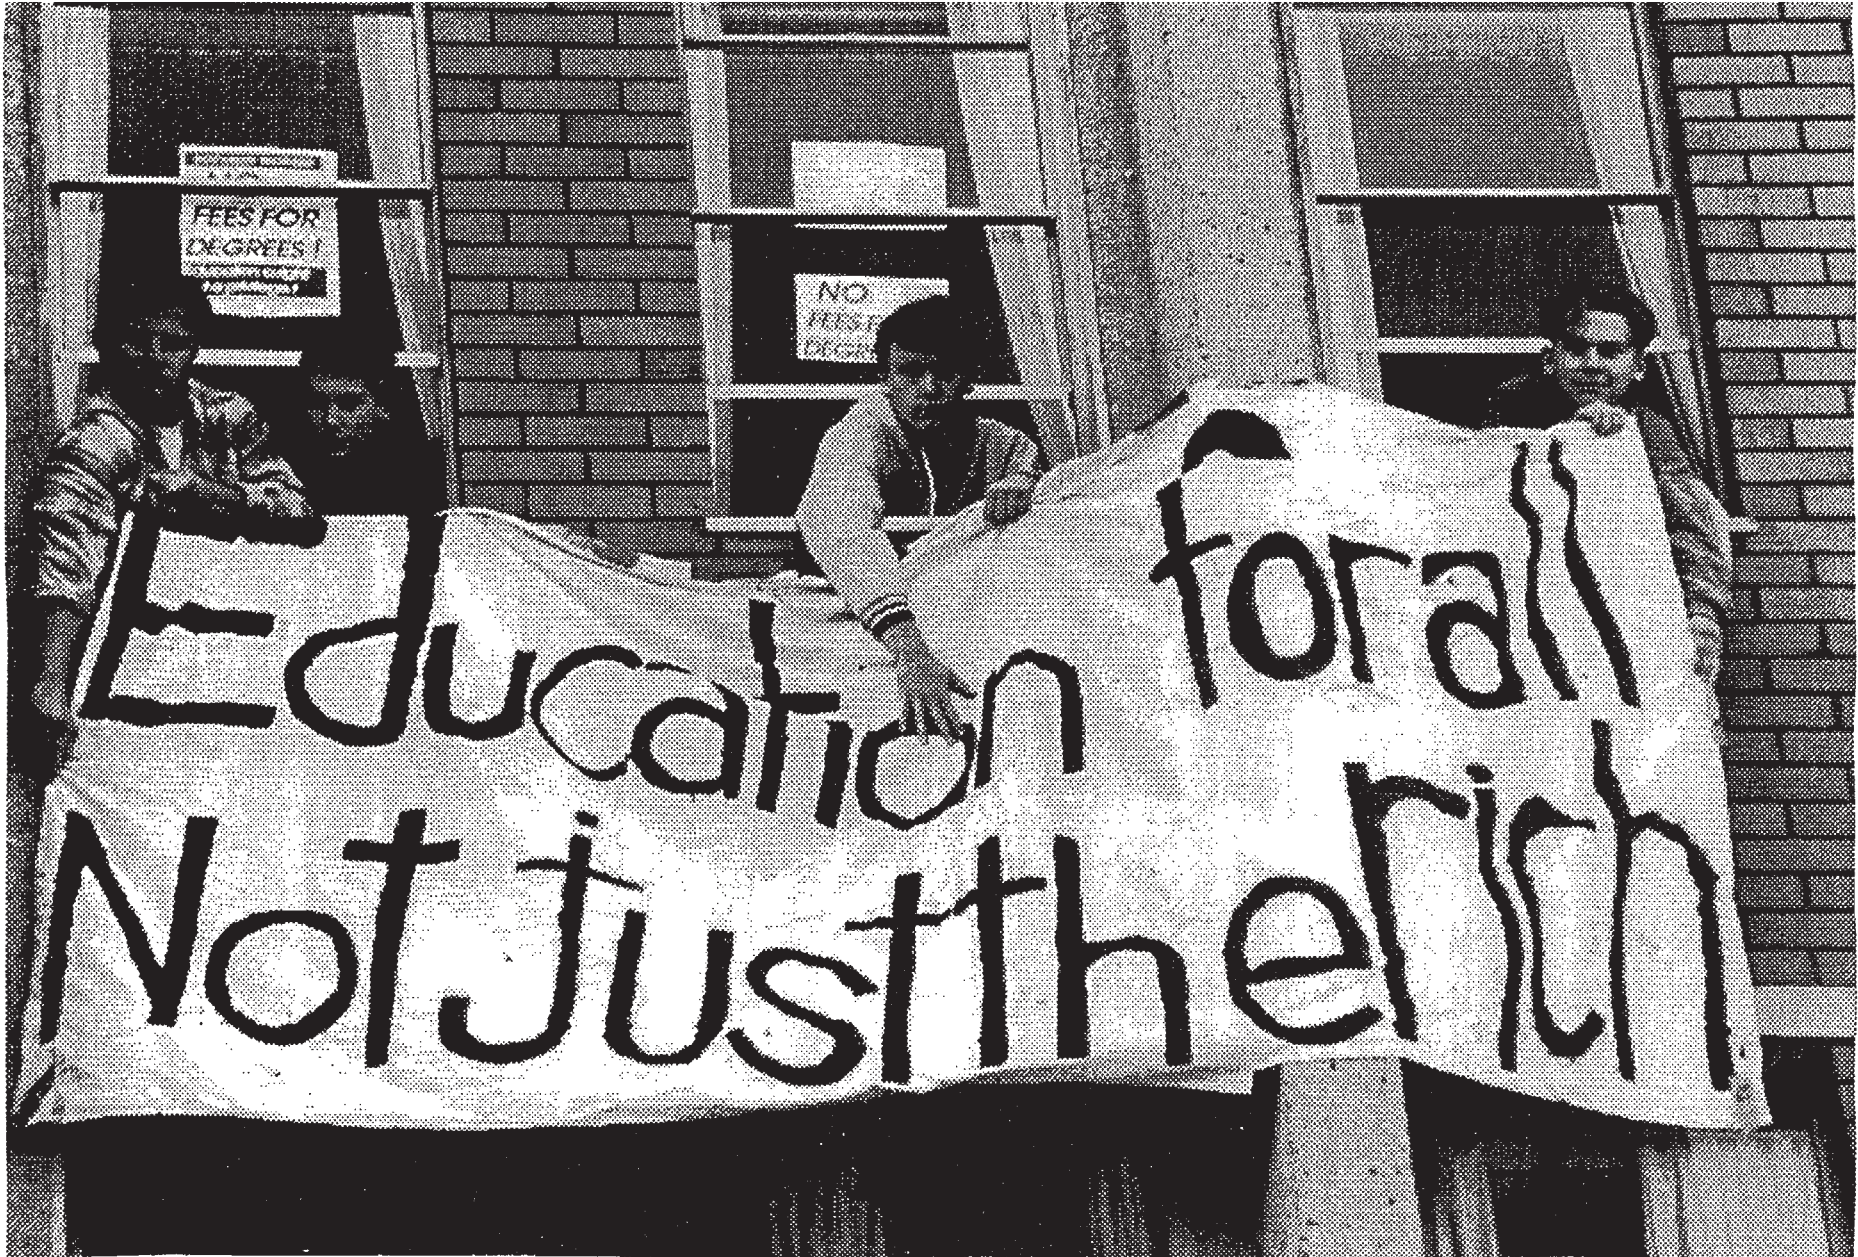 FEES FOR
DEGREES!
NO
FEES
Education for all
Not just the rich